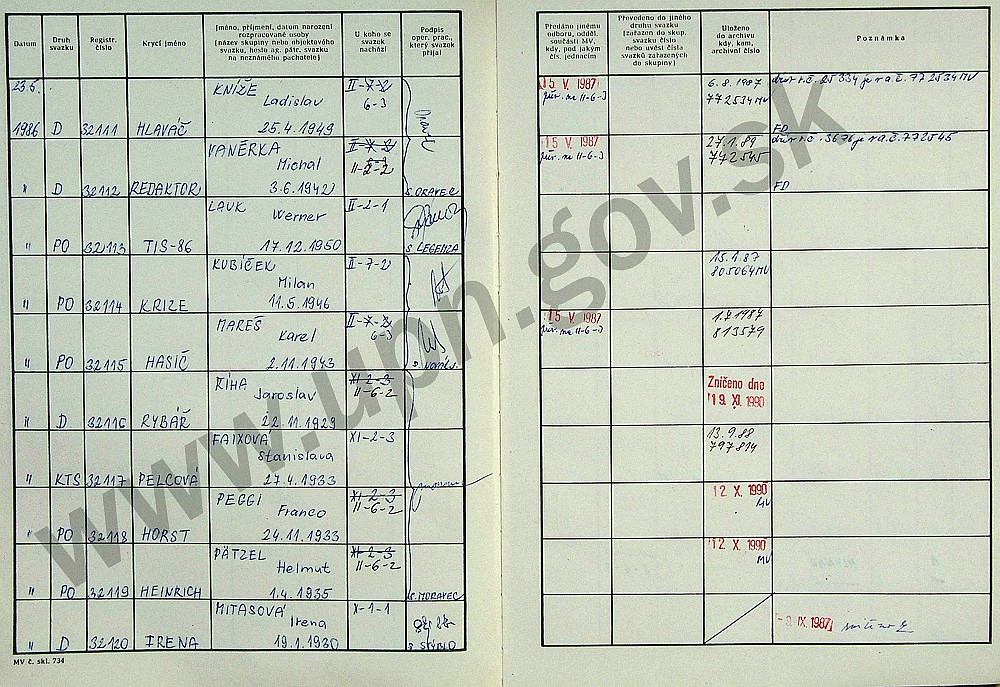 Datum
Druh svazku
Registr. číslo
Krycí jméno
Jméno, příjmení, datum narození
rozpracované osoby
(název skupiny nebo objektového
svazku, heslo ag. pátr. svazku
na neznámého pachatele)
U koho se
svazek
nachází
Podpis
oper. prac.,
který svazek
přijal
Předáno jinému
odboru, odděl.
součásti MV,
kdy, pod jakým
čís. jednacím
Převedeno do jiného
druhu svazku
(zařazen do skup.
svazku číslo
nebo uvésti čísla
svazků zařazených
do skupiny)
Uloženo
do archivu
kdy, kam,
archivní číslo
Poznámka
23.6. KNÍŽE II-7-2 15 V. 1987 6.8.1987
Ladislav 6-3 772534MV
1986 D 32111 HLAVÁČ 25.4.1949 FD
VANĚRKA II-7-2 15 V. 1987 27.1.89
Michal II-2-2 772545
" D 32112 REDAKTOR 3.6.1942 S.ORAVEC FD
LAUK II-2-1
Werner
" PO 32113 TIS-86 17.12.1950 S LEGENZA
KUBÍČEK II-7-2 15.1.87
Milan 805064MV
" PO 32114 KRIZE 11.5.1946
MAREŠ II-7-2 15 V. 1987 1.7.1987
Karel 6-3 813579
" PO 32115 HASIČ 2.11.1943
ŘÍHA XI-2-3 Zničeno dne
Jaroslav II-6-2 19. XI. 1990
" D 32116 RYBÁŘ 22.11.1929
FAIXOVÁ XI-2-3 13.9.88
Stanislava 797814
" KTS 32117 PELCOVÁ 27.4.1933
PEGGI XI-2-3 12 X. 1990
Franco II-6-2 MV
" PO 32118 HORST 24.11.1933
PÄTZEL XI-2-3 12 X. 1990
Helmut II-6-2 MV
" PO 32119 HEINRICH 1.4.1935 MORAVEC
MITASOVÁ X-1-1 -9. IX. 1987
Irena
" D 32120 IRENA 19.1.1930
MV č. skl. 734
www.upn.gov.sk